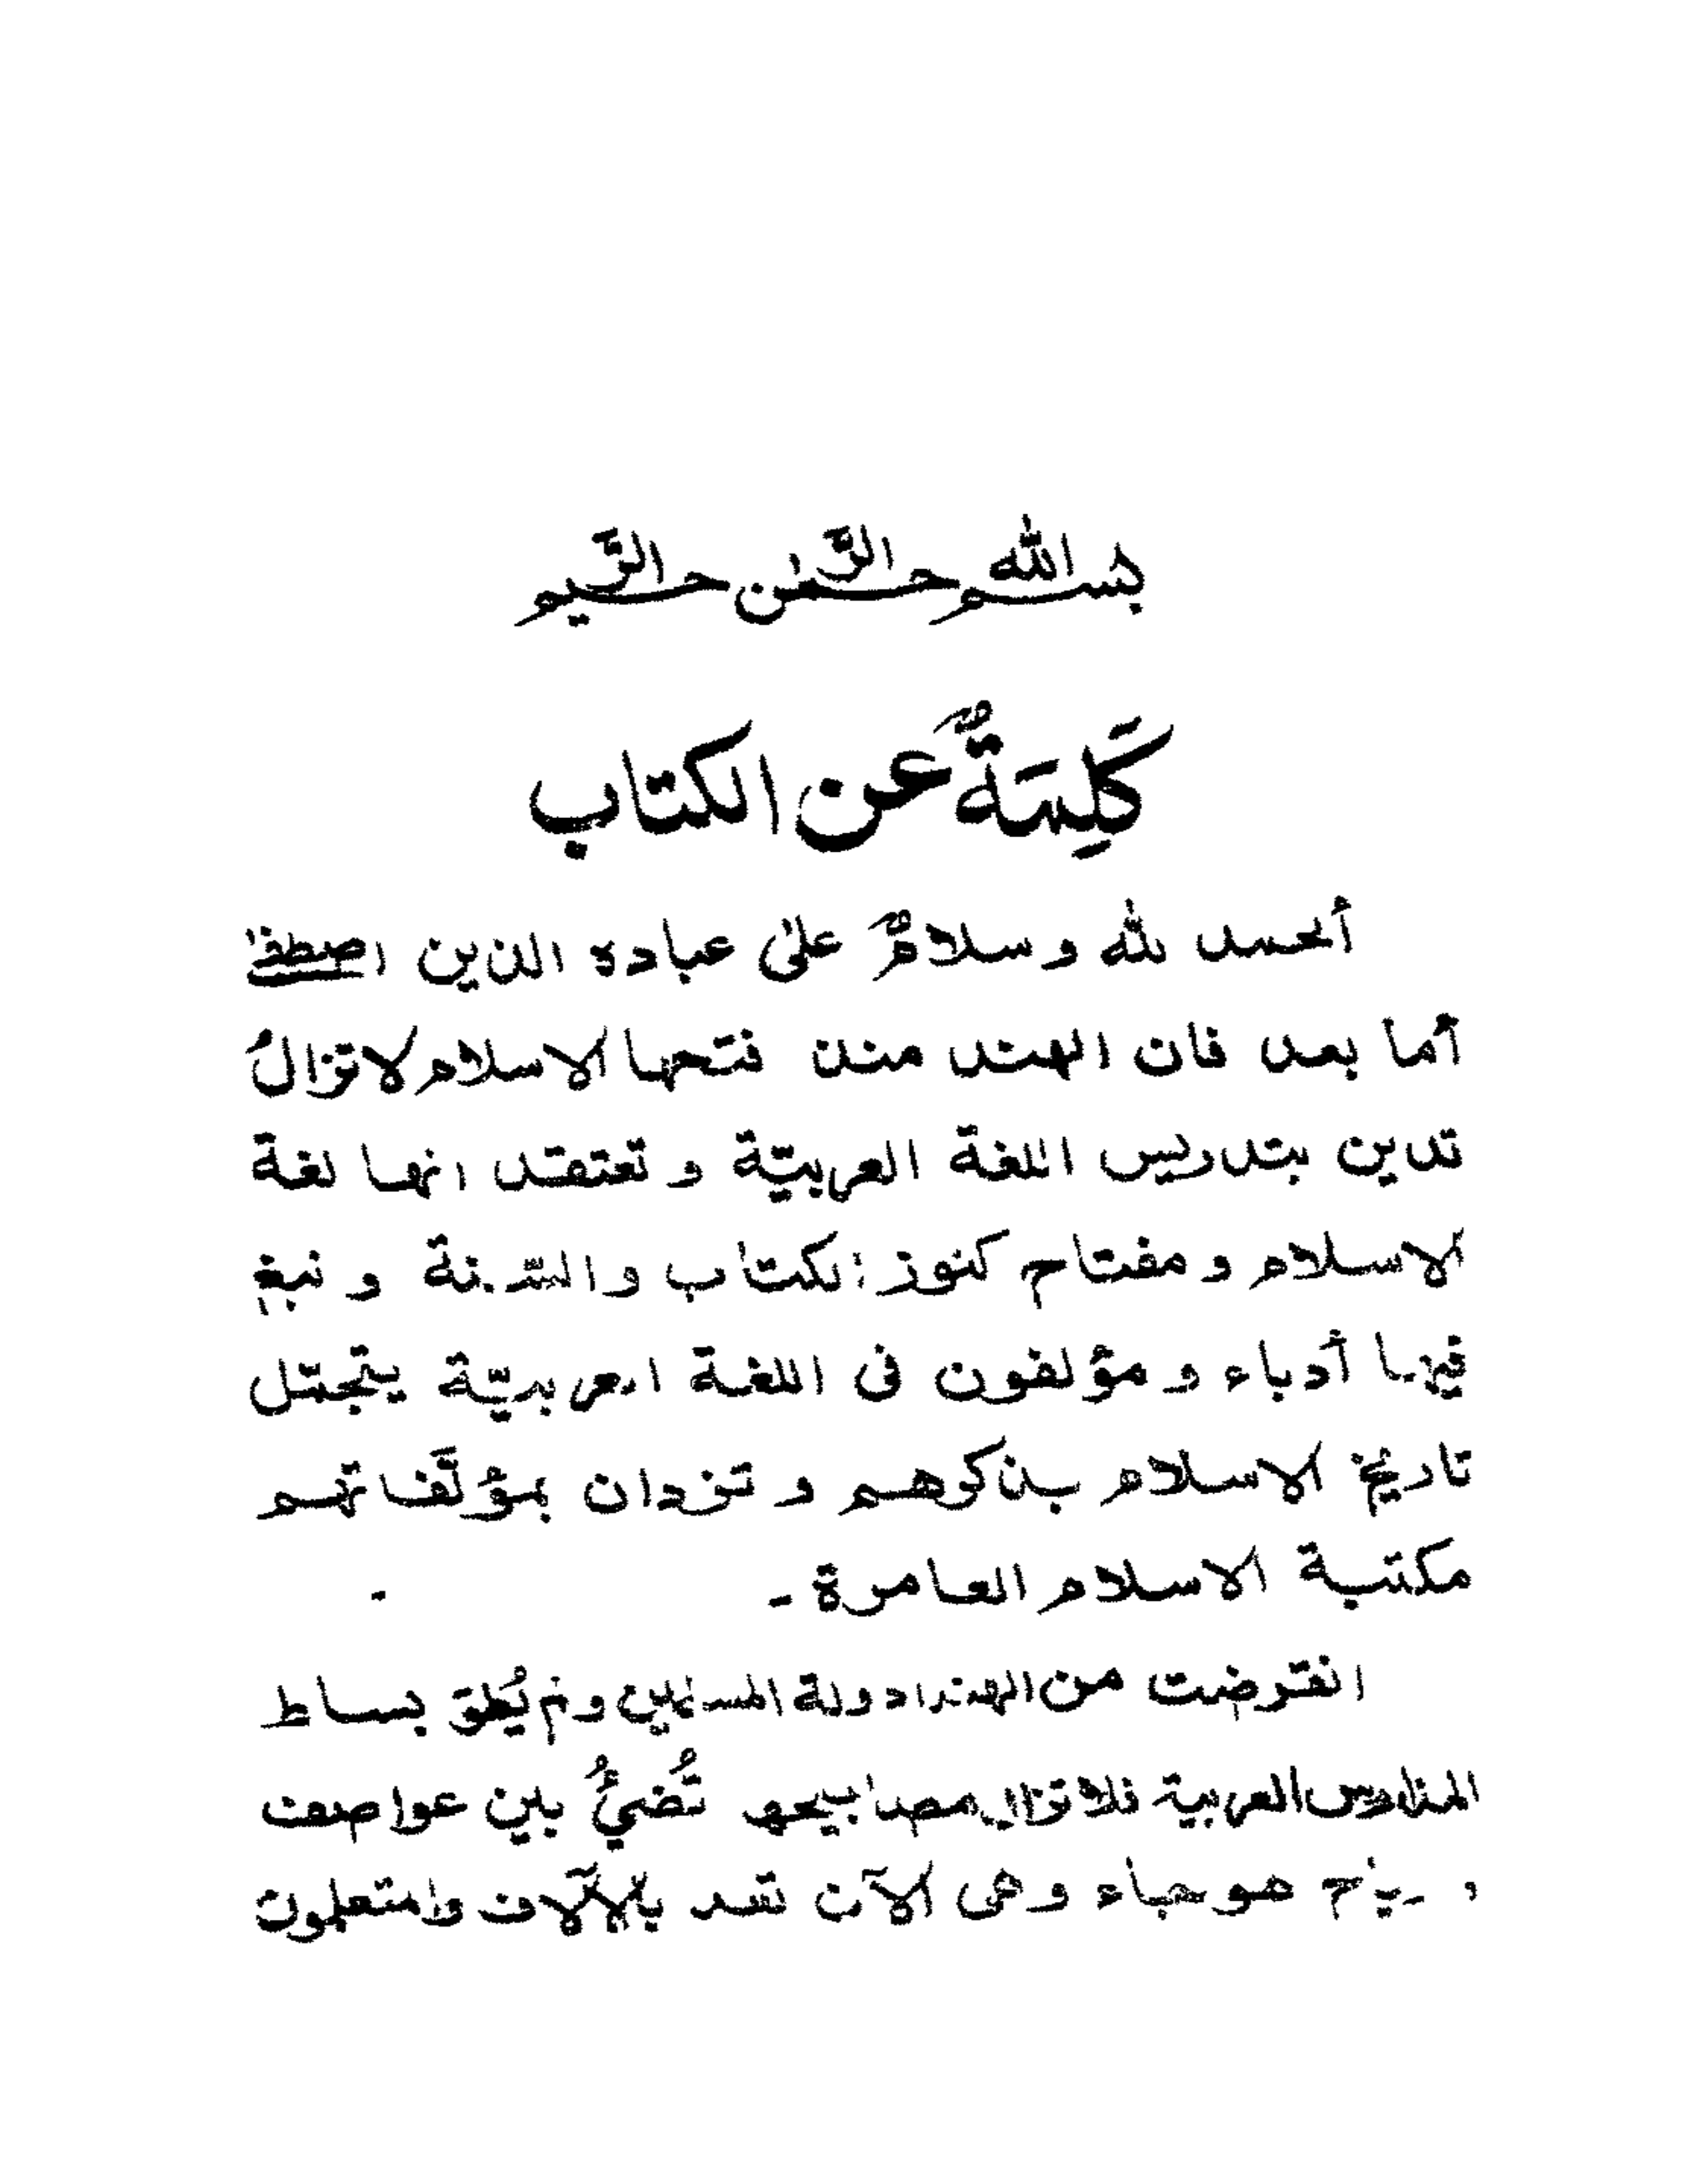 بسم الله الرحمٰن الرحيم
كَلِمَةٌ عن الكتاب
ألحمد لله و سلامٌ علىٰ عباده الذين اصطفىٰ
أما بعد فان الهند منذ فتحها الاسلام لا تزالُ
تدين بتدريس اللغة العربيّة و تعتقد انها لغة
الاسلام و مفتاح كنوز الكتاب والسّنة و نبغ
فيها أدباء و مؤلفون فى اللغة العربيّة يتجمّل
تاريخ الاسلام بذكرهم و تزدان بمؤلَّفاتهم
مكتبة الاسلام العامرة -
انقرضت من الهند دولة المسلمين ولم يُطوَ بساط
المدارس العربية فلا تزال مصابيحها تُضئُ بين عواصف
و رياح هوجاء وهى الآن تعد بالآلاف والمتعلمون